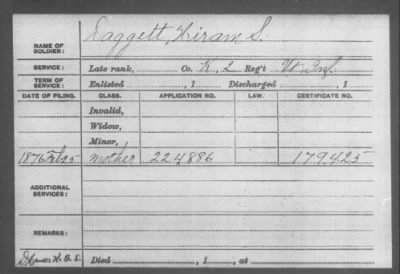 NAME OF SOLDIER: Daggett, Hiram S.
SERVICE: Late rank, Co. K, Reg't Vt. Inf.
TERM OF SERVICE: Enlisted , 1 Discharged , 1
DATE OF FILING. CLASS. APPLICATION NO. LAW. CERTIFICATE NO.
Invalid,
Widow,
Minor,
1876 Feb 25 mother 224886 179,425
ADDITIONAL SERVICES:
REMARKS:
Died , 1 , at